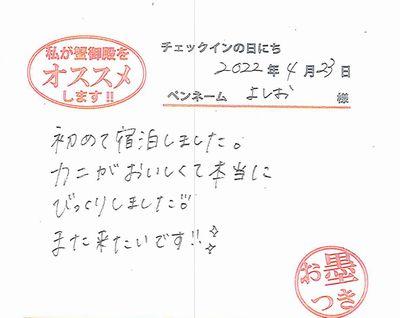 私が蟹御殿を
オススメ
します!!
チェックインの日にち
2022年4月23日
ペンネーム よしお 様
初めて宿泊しました。
カニがおいしくて本当に
びっくりしました!!
また来たいです!!
お墨
つき